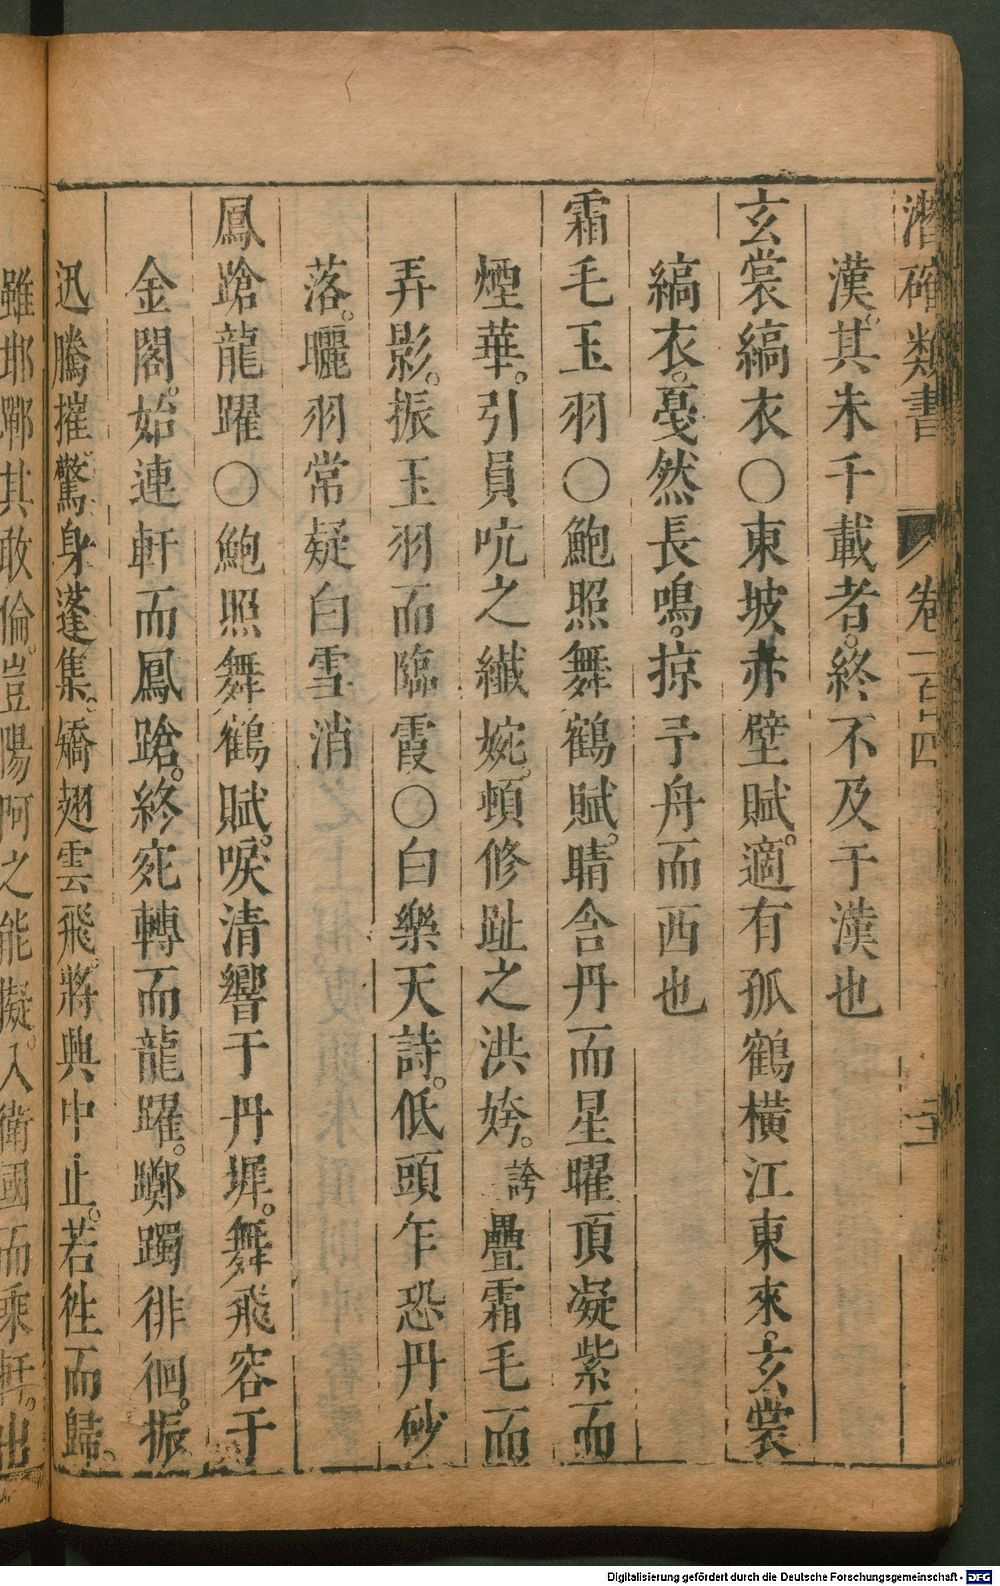 潛確類書 卷一百四
漢。其朱千載者。終不及于漢也
玄裳縞衣○東坡赤壁賦。適有孤鶴橫江東來。玄裳
縞衣。戞然長鳴。掠予舟而西也
霜毛玉羽○鮑照舞鶴賦。睛含丹而星曜頂凝紫而
煙華。引員吭之纖婉。頓修趾之洪姱。誇疊霜毛而
弄影。振玉羽而臨霞○白樂天詩。低頭乍恐丹砂
落。曬羽常疑白雪消
鳳蹌龍躍○鮑照舞鶴賦。唳清響于丹墀。舞飛容于
金閣。始連軒而鳳蹌。終宛轉而龍躍。躑躅徘徊。振
迅騰摧。驚身蓬集。矯翅雲飛。將興中止。若徃而歸。
雖邯鄲其敢倫。豈陽阿之能擬。入衛國而乘軒。出
Digitalisierung gefördert durch die Deutsche Forschungsgemeinschaft - DFG